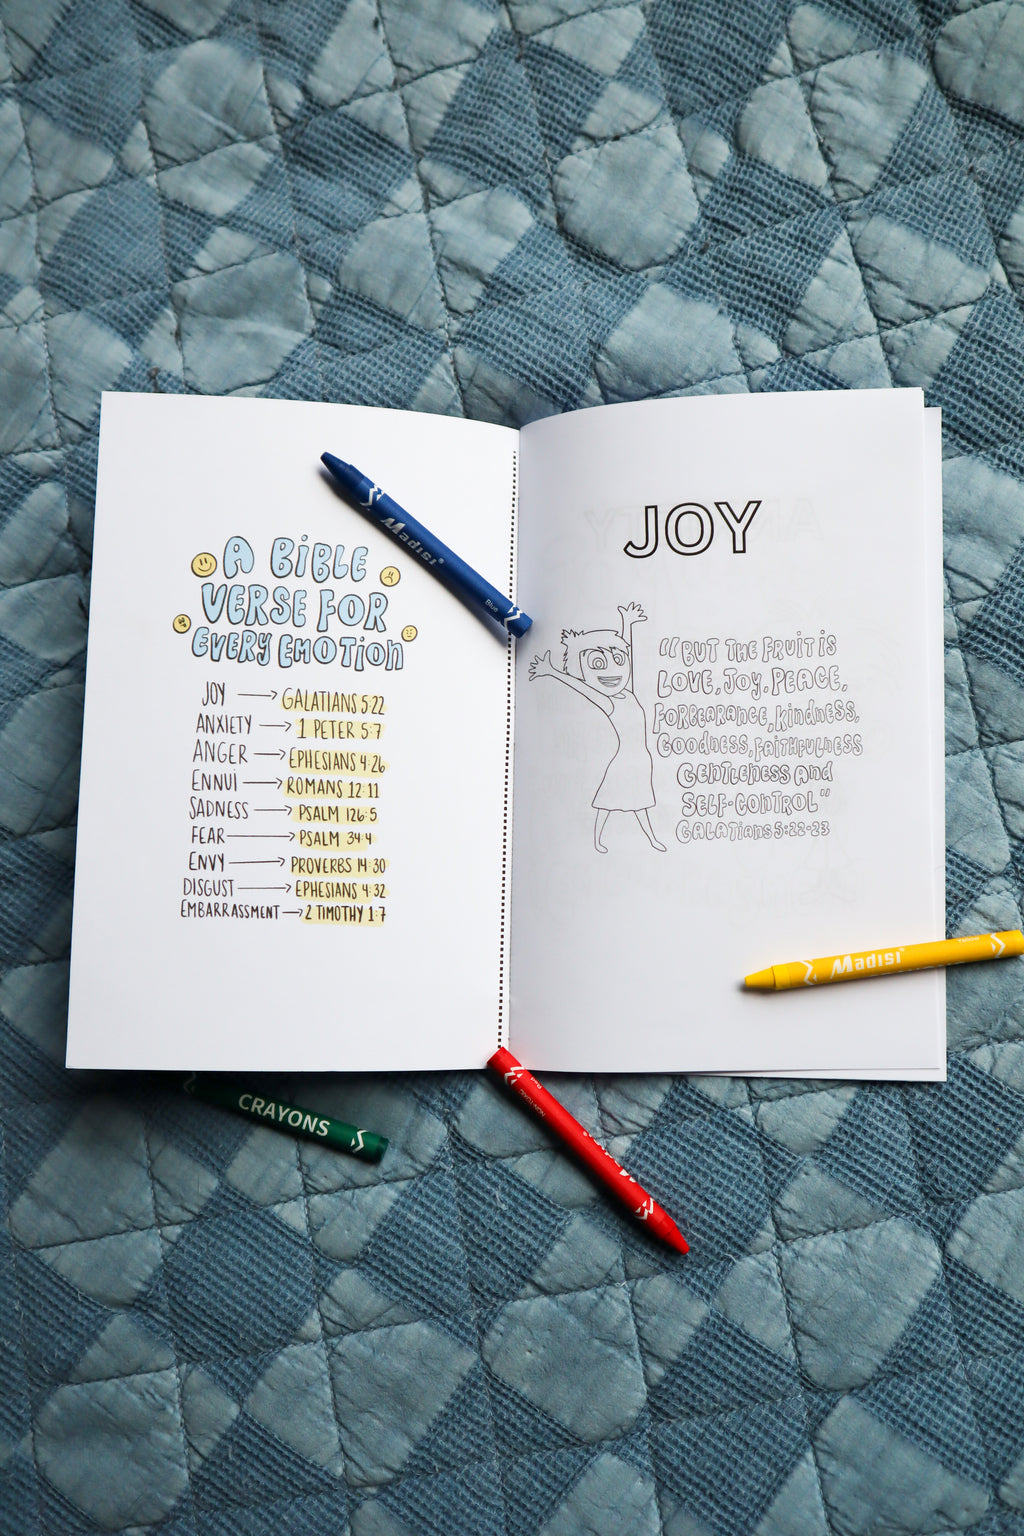 A BIBLE
VERSE FOR
EVERY EMOTION
JOY → GALATIANS 5:22
ANXIETY → 1 PETER 5:7
ANGER → EPHESIANS 4:26
ENNUI → ROMANS 12:11
SADNESS → PSALM 126:5
FEAR → PSALM 34:4
ENVY → PROVERBS 14:30
DISGUST → EPHESIANS 4:32
EMBARRASSMENT → 2 TIMOTHY 1:7
Madisi®
Blue
JOY
"BUT THE FRUIT IS
LOVE, JOY, PEACE,
FORBEARANCE, KINDNESS,
GOODNESS, FAITHFULNESS
GENTLENESS AND
SELF-CONTROL"
GALATIANS 5:22-23
Madisi®
Yellow
CRAYONS
Red
NON-TOXIC